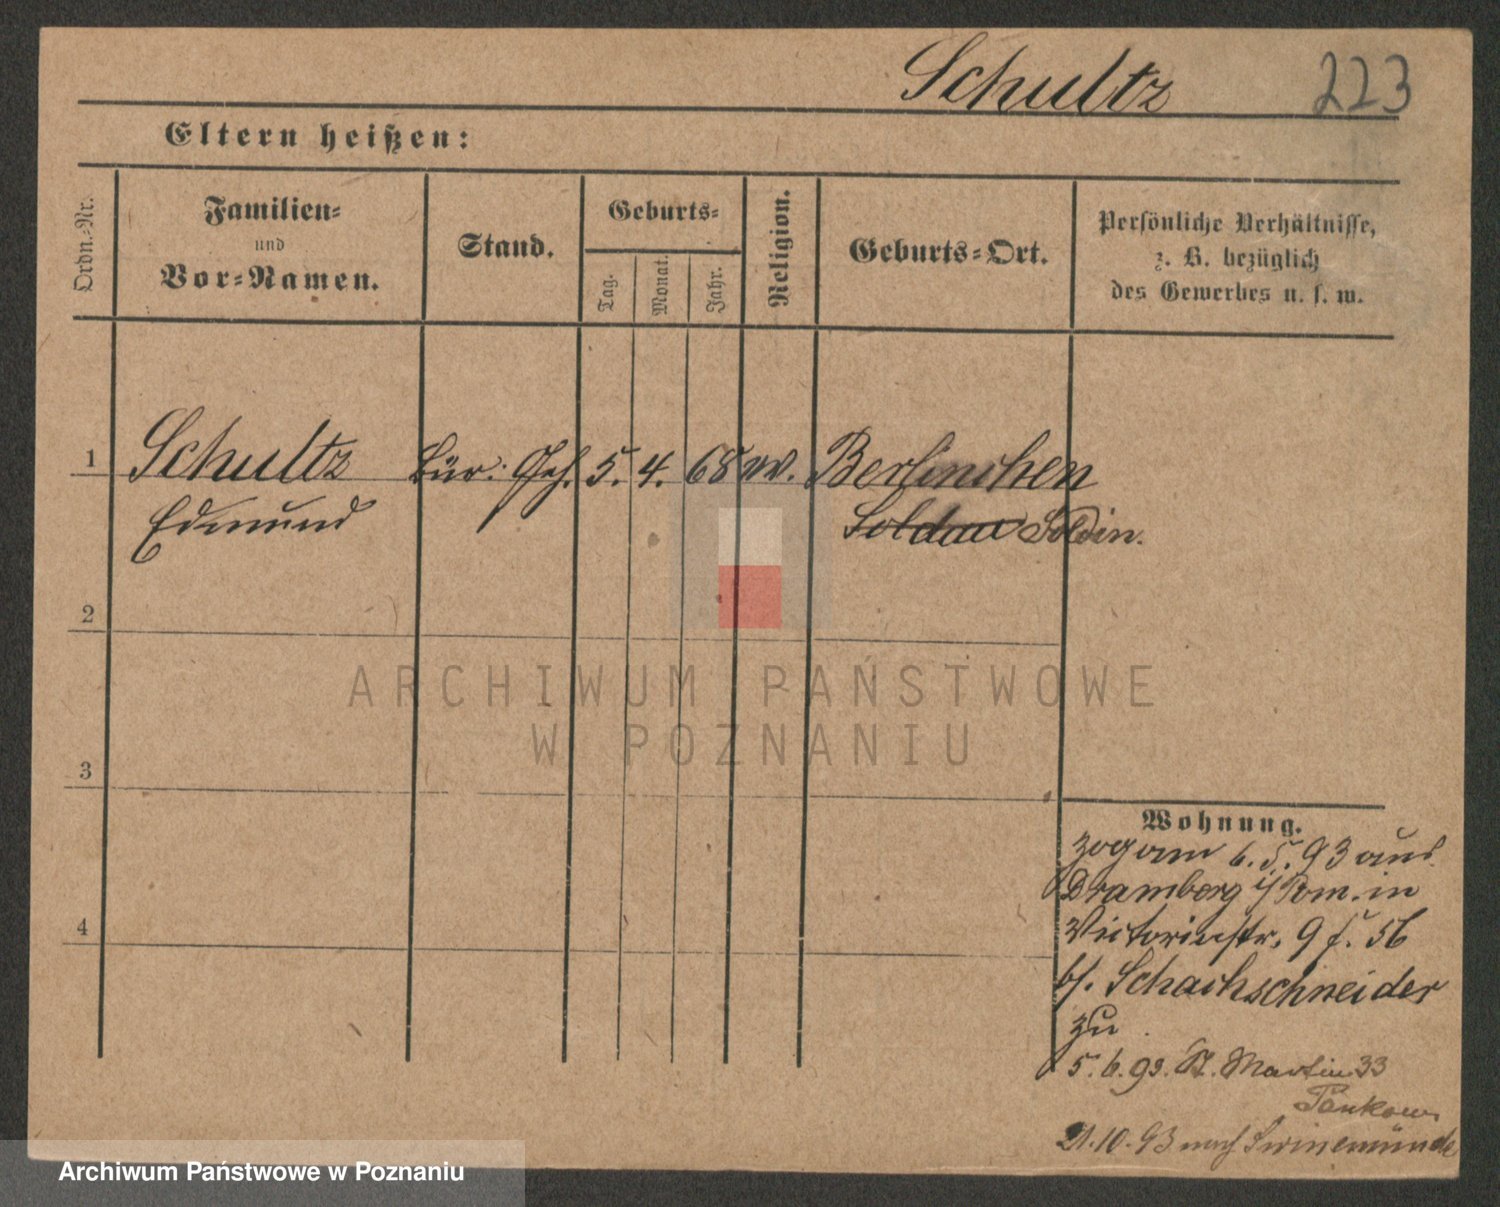 Schultz 223
Eltern heißen:
Ordn.-Nr.
Familien-
und
Vor-Namen.
Stand.
Geburts-
Tag.
Monat.
Jahr.
Religion.
Geburts-Ort.
Persönliche Verhältnisse,
z. B. bezüglich
des Gewerbes u. s. w.
1 Schultz Bür. Geh. 5. 4. 68 ev. Berlinchen
Edmund Soldau Soldin.
2
3
4
Wohnung.
zog am 6. 5. 93 aus
Dramberg i/Pom. in
Victoriastr. 9
b/. Schachschneider
zu
5. 6. 93. St. Martin 33
Pankow
21.10.93 nach Swinemünde
ARCHIWUM PAŃSTWOWE
W POZNANIU
Archiwum Państwowe w Poznaniu